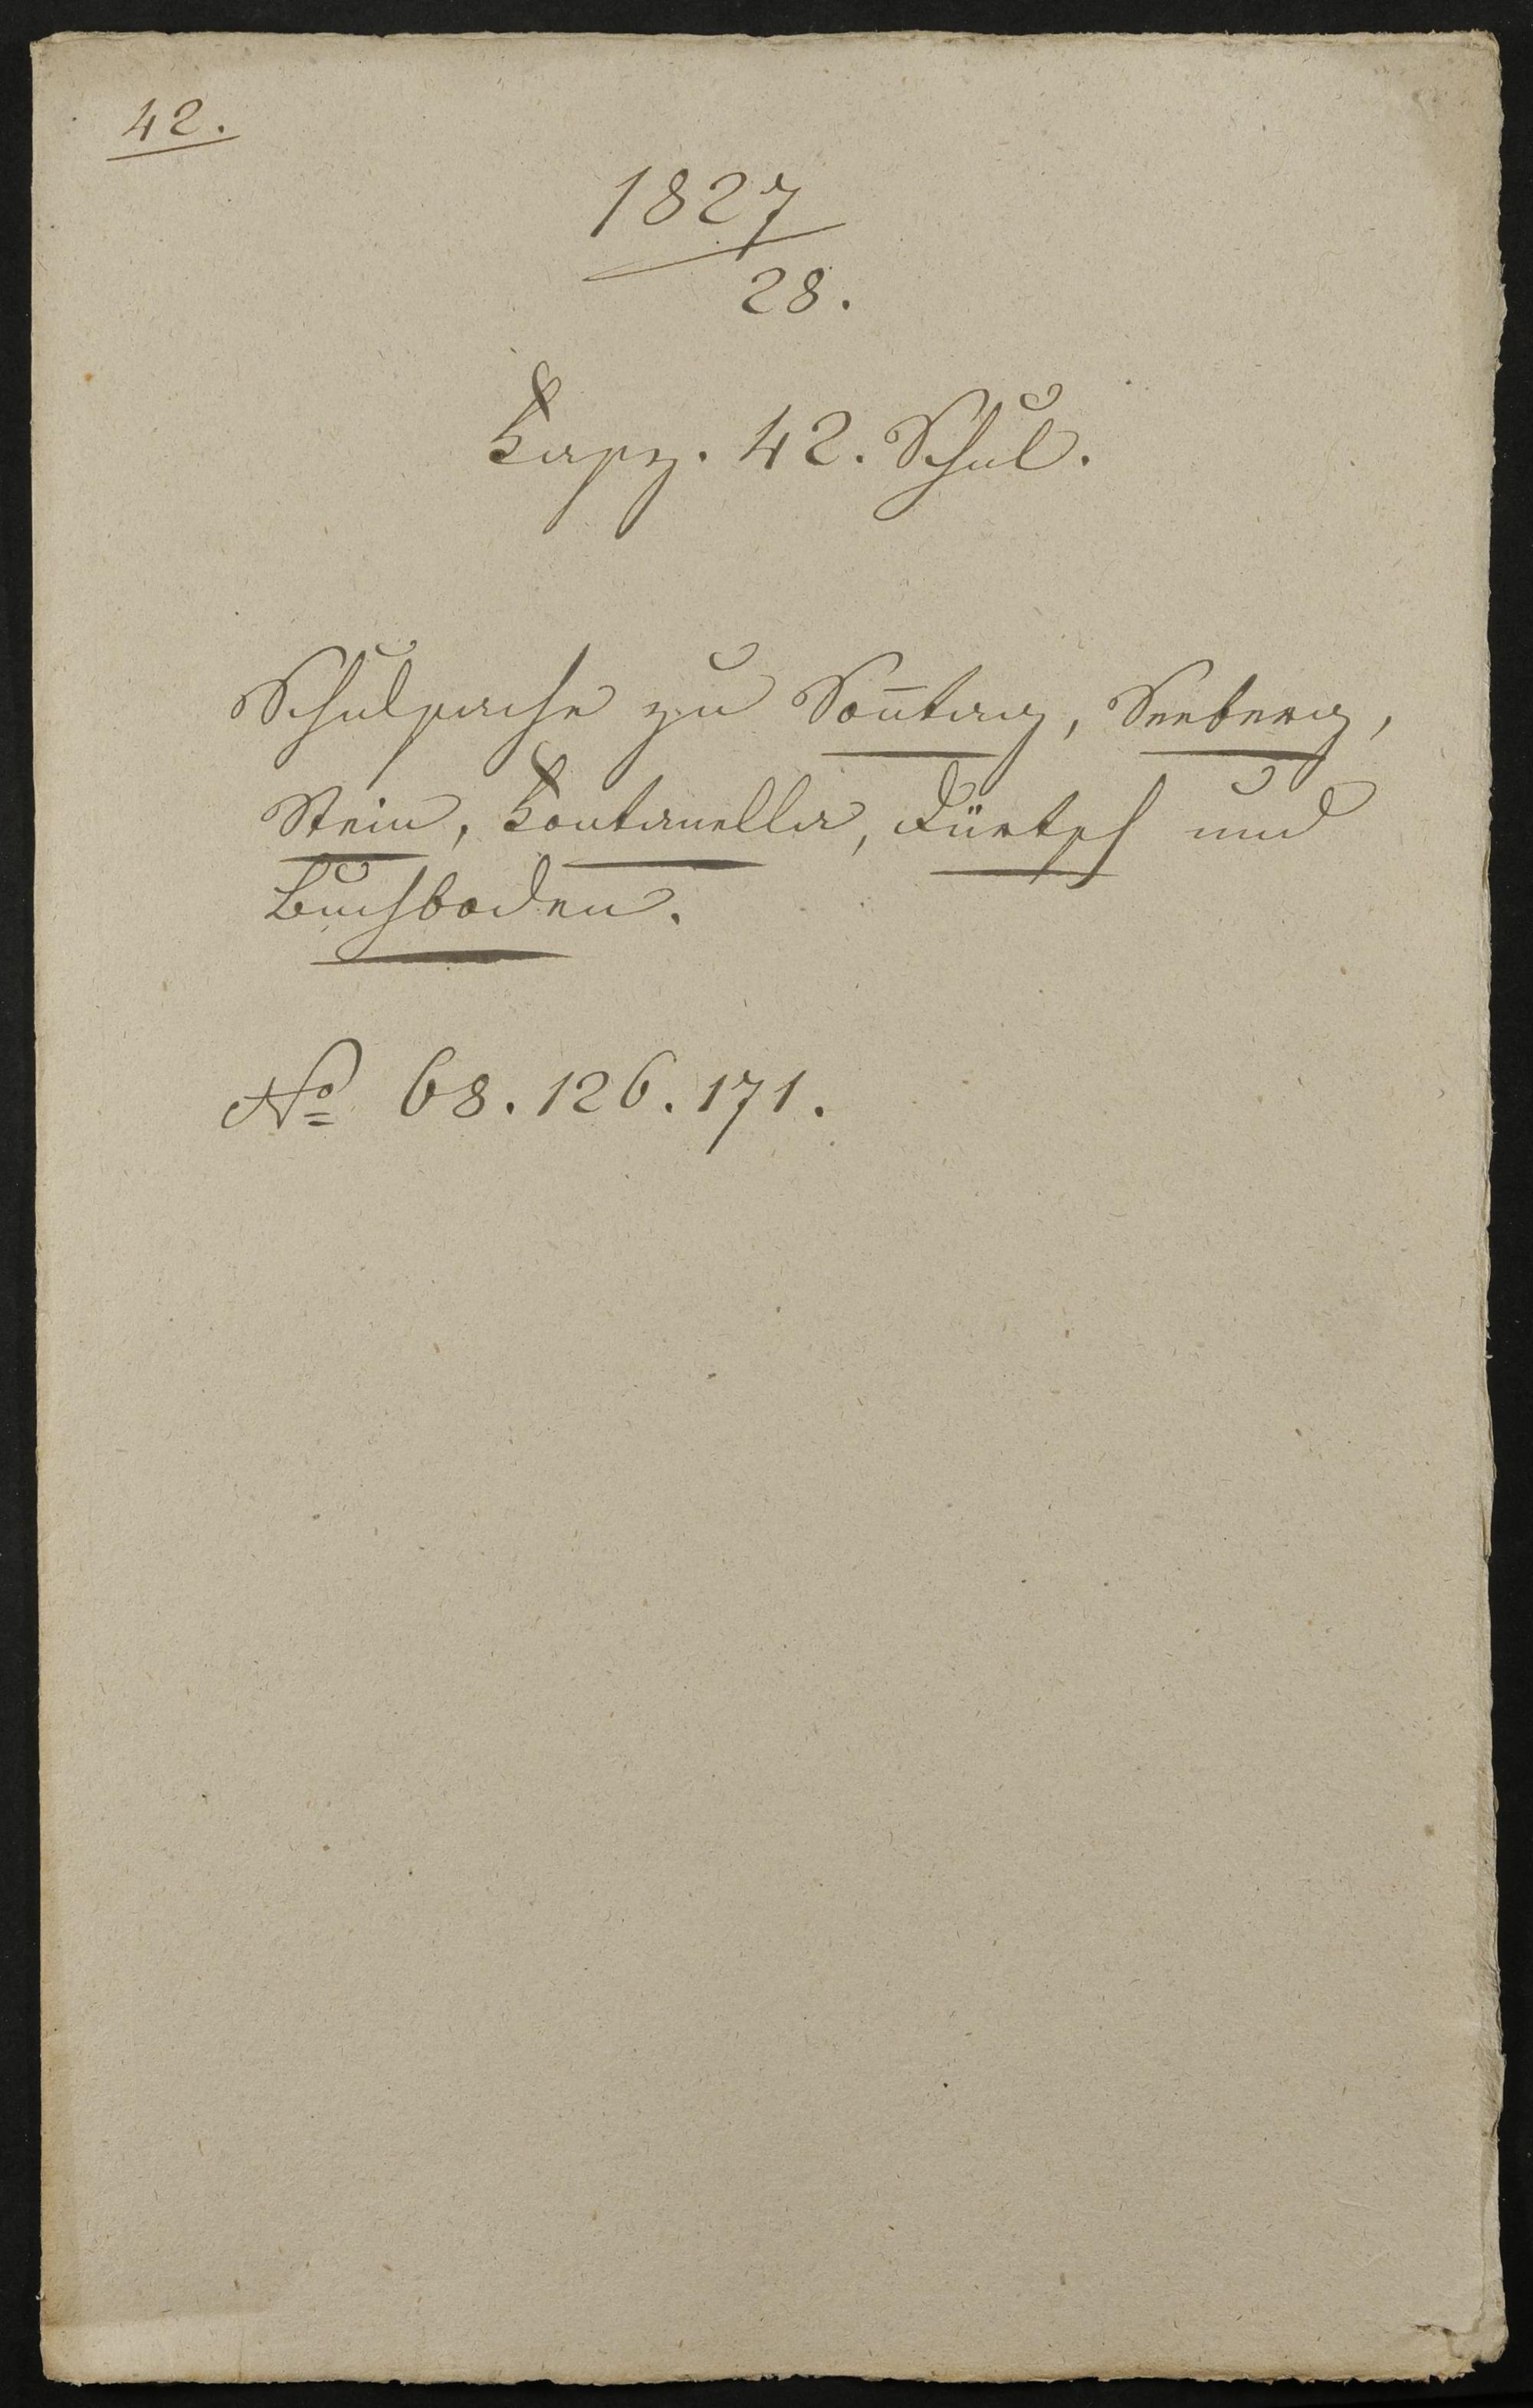 42.
1827
28.
Fasz. 42. Schul.
Schulsache zu Som̄tag, Seeberg,
Stein, Fontanella, Türtsch und
Buchboden.
No 68. 126. 171.